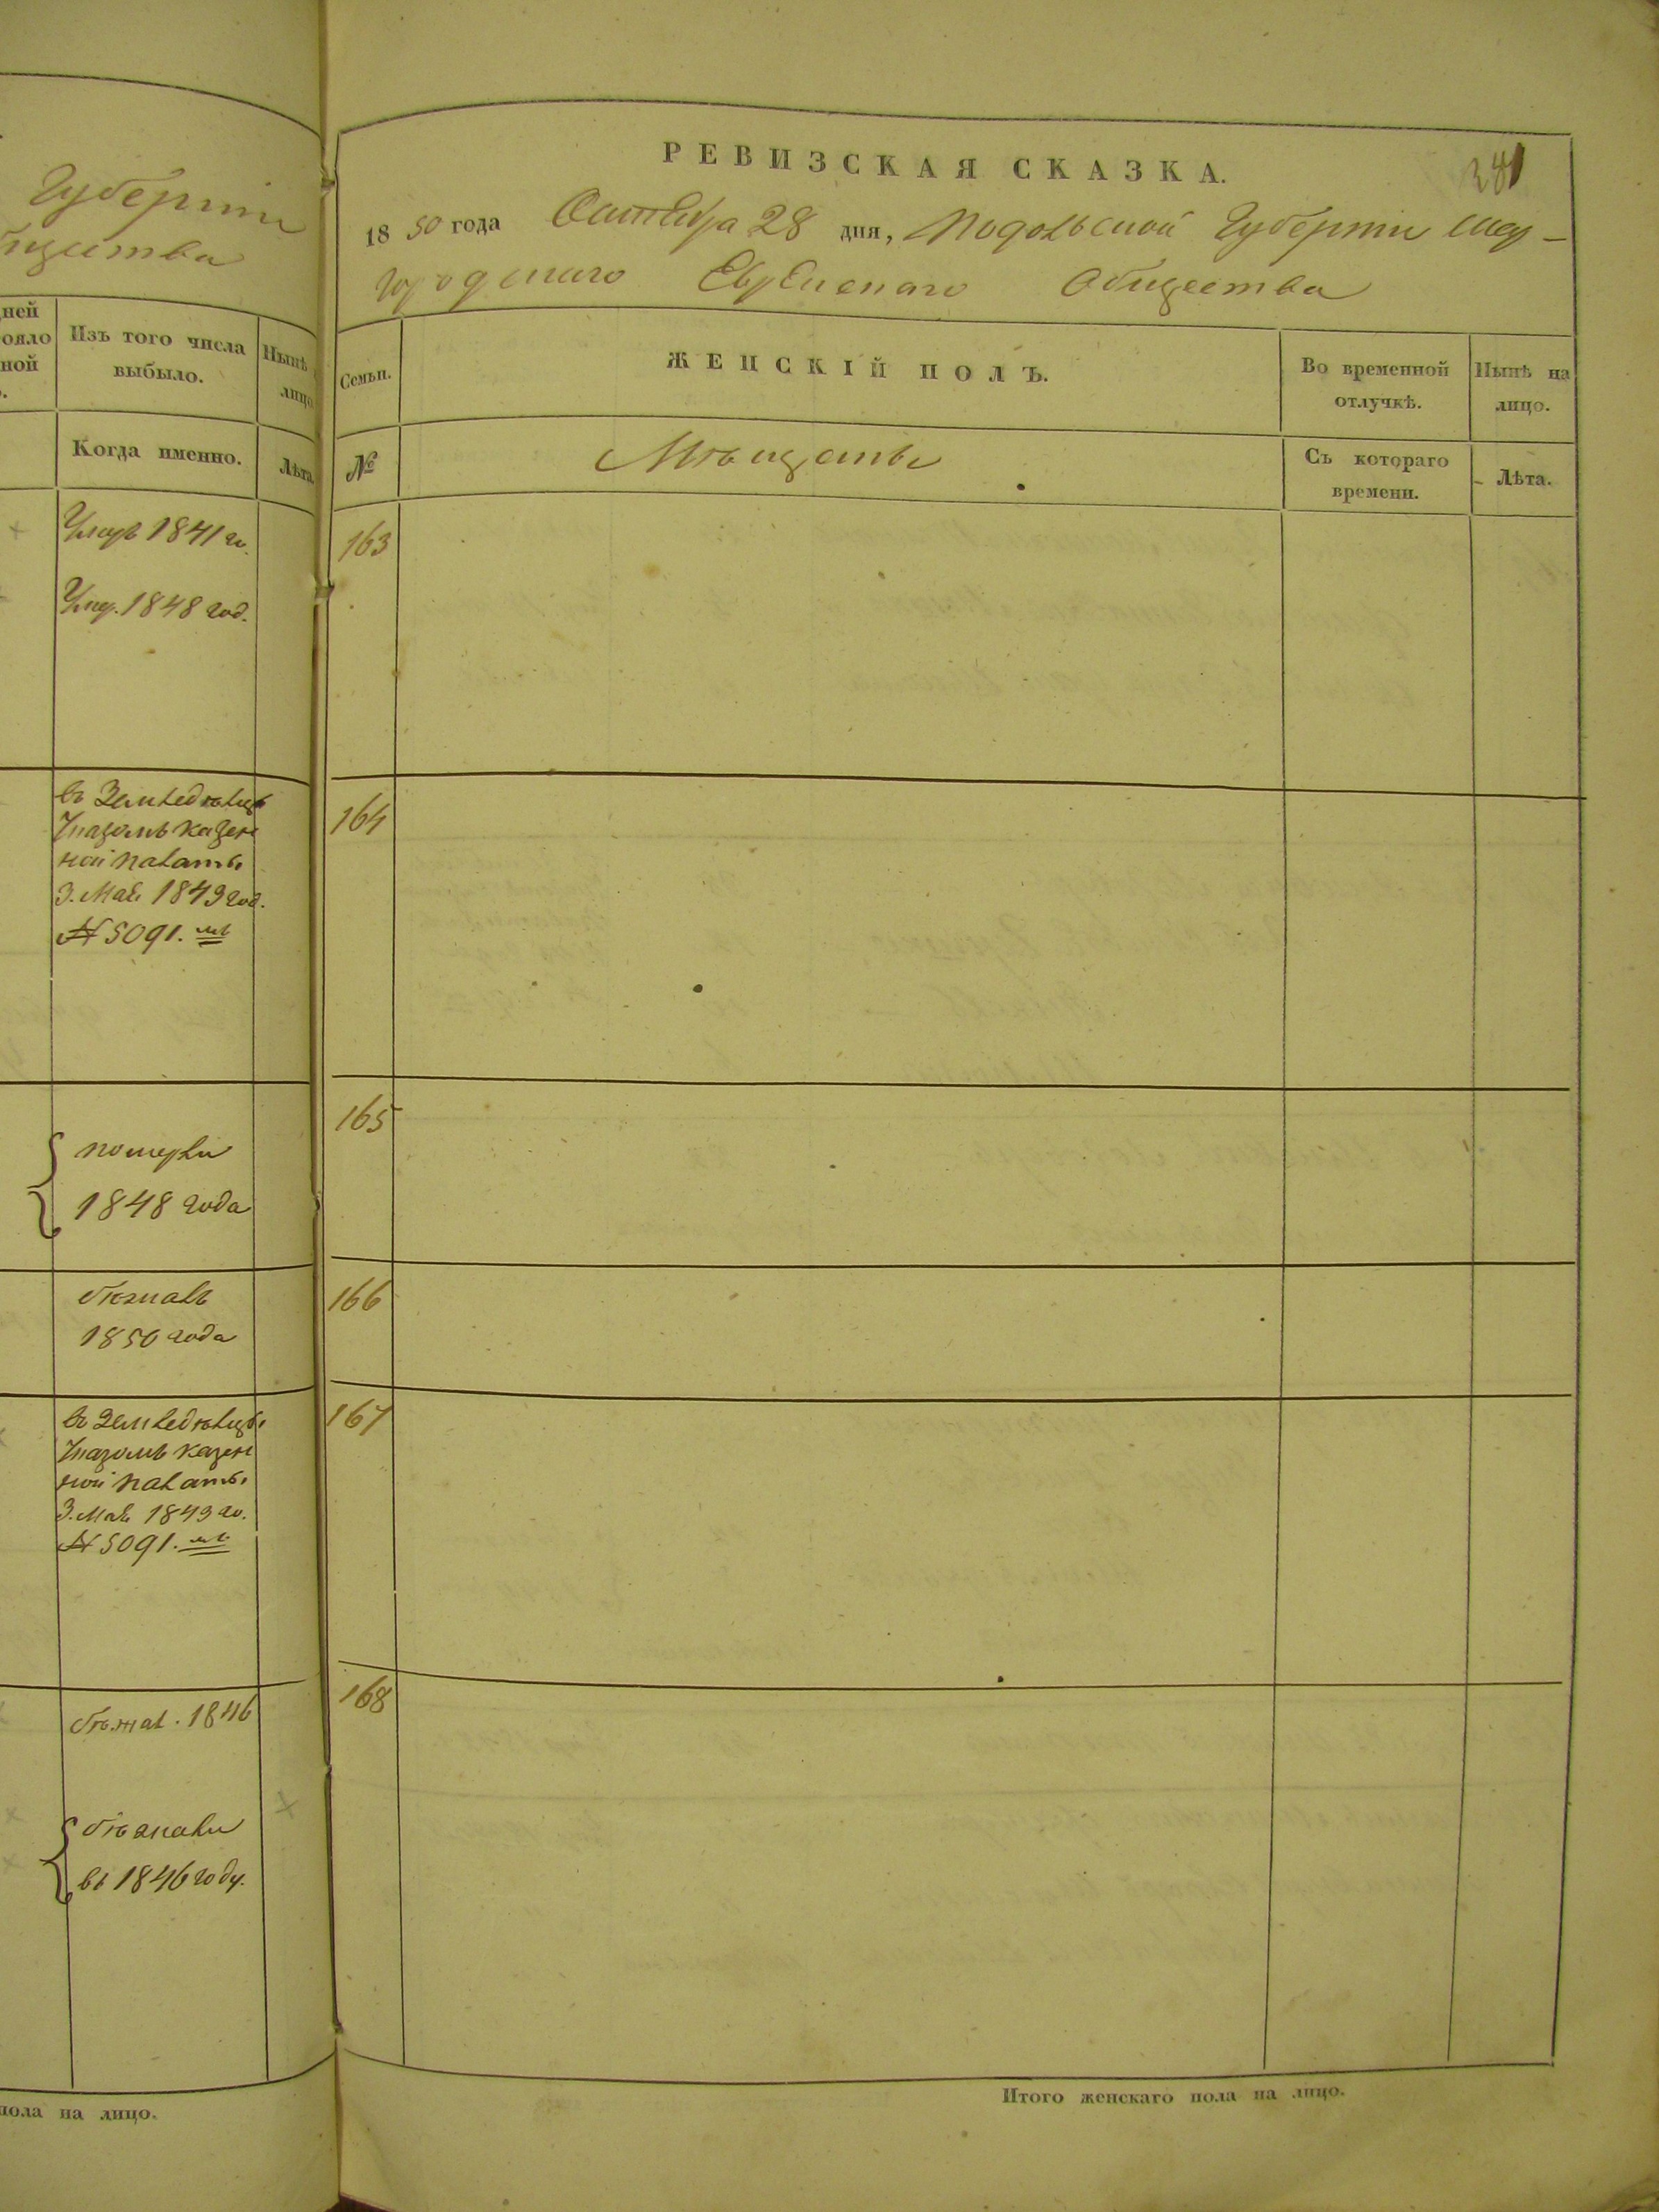 Губерніи
бщества
ней
ояло
ной
Изъ того числа
выбыло.
Нынѣ
лицо
Когда именно.
Лѣта
Умеръ 1841 го.
Умер. 1848 год.
въ Земледѣльцы
Указомъ казен
ной палаты
3. Мая 1849 год.
№ 5091.
померли
1848 года
бѣжалъ
1850 года
въ Земледѣльцы
Указомъ казен
ной палаты
3. Мая 1849 го.
№ 5091.
бѣжал. 1846
бѣжали
въ 1846 году.
пола на лицо.
РЕВИЗСКАЯ СКАЗКА.
381
1850 года Октября 28 дня, Подольской Губерніи Шар-
городскаго Еврейскаго Общества
Семьи.
ЖЕНСКІЙ ПОЛЪ.
Во временной
отлучкѣ.
Нынѣ на
лицо.
№
Мѣщане
Съ котораго
времени.
Лѣта.
163
164
165
166
167
168
Итого женскаго пола на лицо.